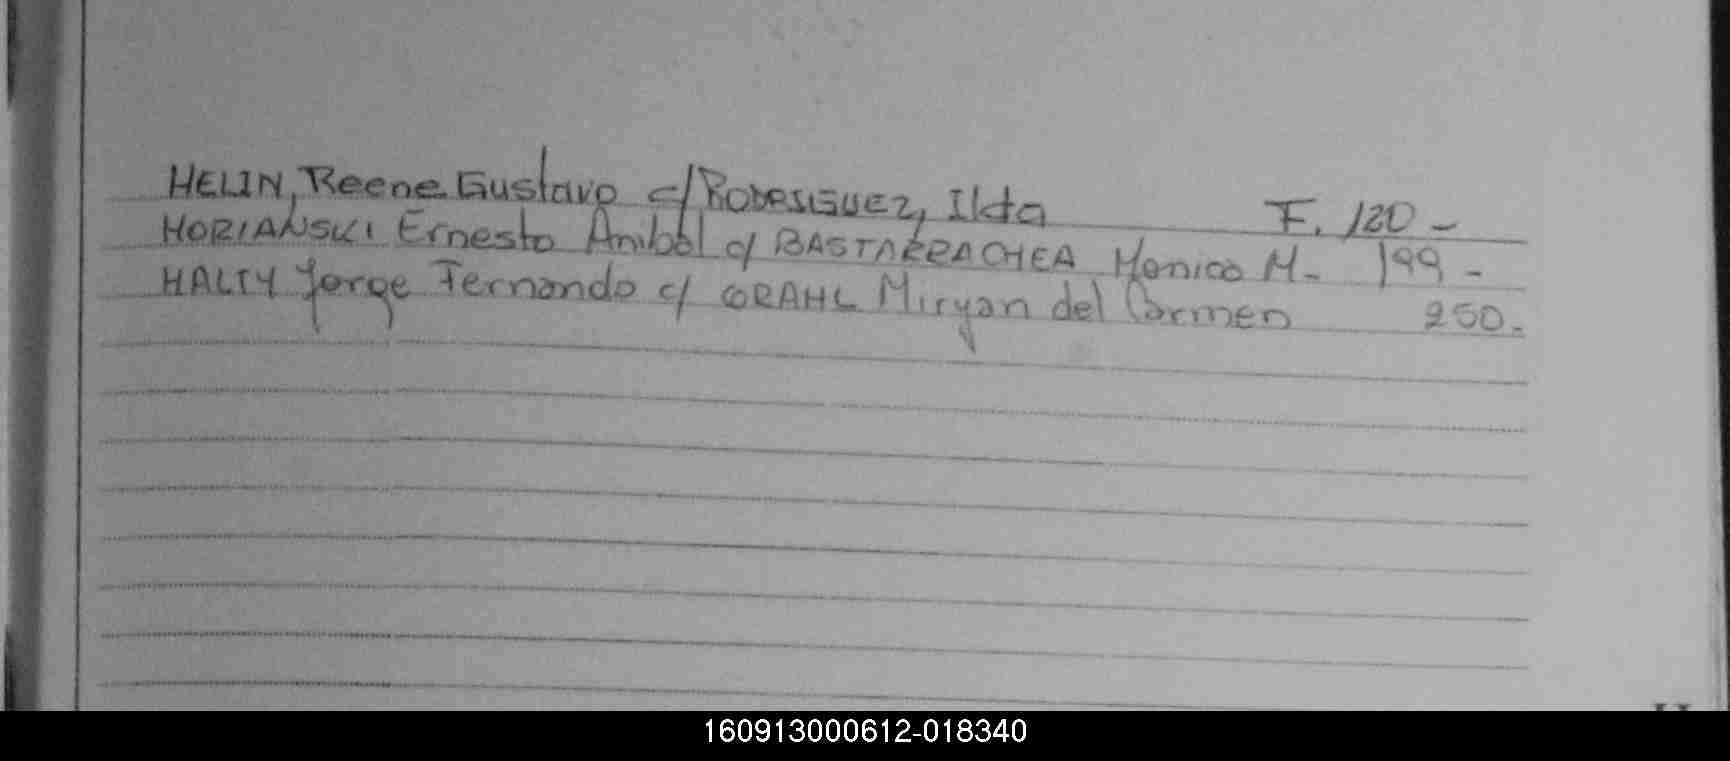 HELIN, Reene Gustavo c/ RODRIGUEZ, Ilda F. 120 -
HORIANSKI Ernesto Anibal c/ BASTARRACHEA Monica M. - 199 -
HALTY Jorge Fernando c/ GRAHL Miryan del Carmen 250.
160913000612-018340